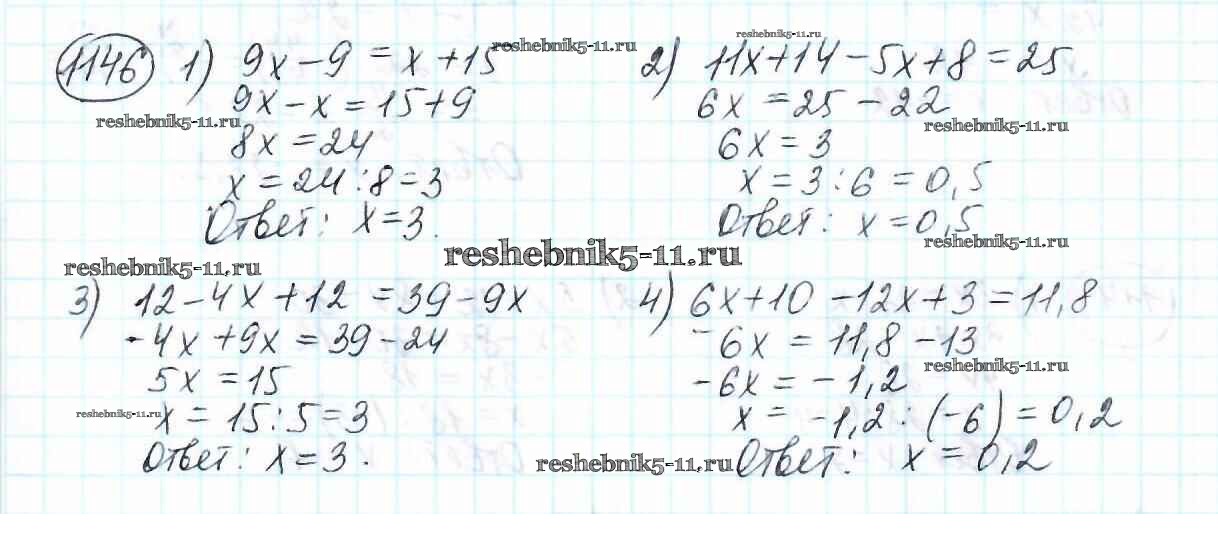 1146 1) 9x-9=x+15
reshebnik5-11.ru
9x-x=15+9
reshebnik5-11.ru
8x=24
x=24:8=3
Ответ: x=3.
reshebnik5-11.ru
2) 11x+14-5x+8=25
6x=25-22
reshebnik5-11.ru
6x=3
x=3:6=0,5
Ответ: x=0,5
reshebnik5-11.ru
reshebnik5-11.ru
reshebnik5-11.ru
3) 12-4x+12=39-9x
-4x+9x=39-24
5x=15
reshebnik5-11.ru
x=15:5=3
Ответ: x=3.
4) 6x+10-12x+3=11,8
-6x=11,8-13
reshebnik5-11.ru
-6x=-1,2
x=-1,2:(-6)=0,2
reshebnik5-11.ru
Ответ: x=0,2